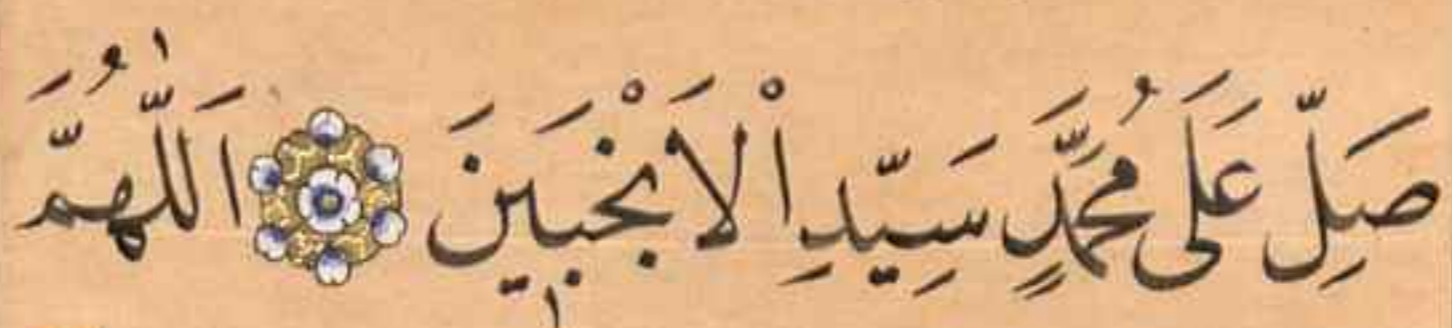 صَلِّ عَلَى مُحَمَّدٍ سَيِّدِ اْلاَنْجَبِينَ اَللّٰهُمَّ